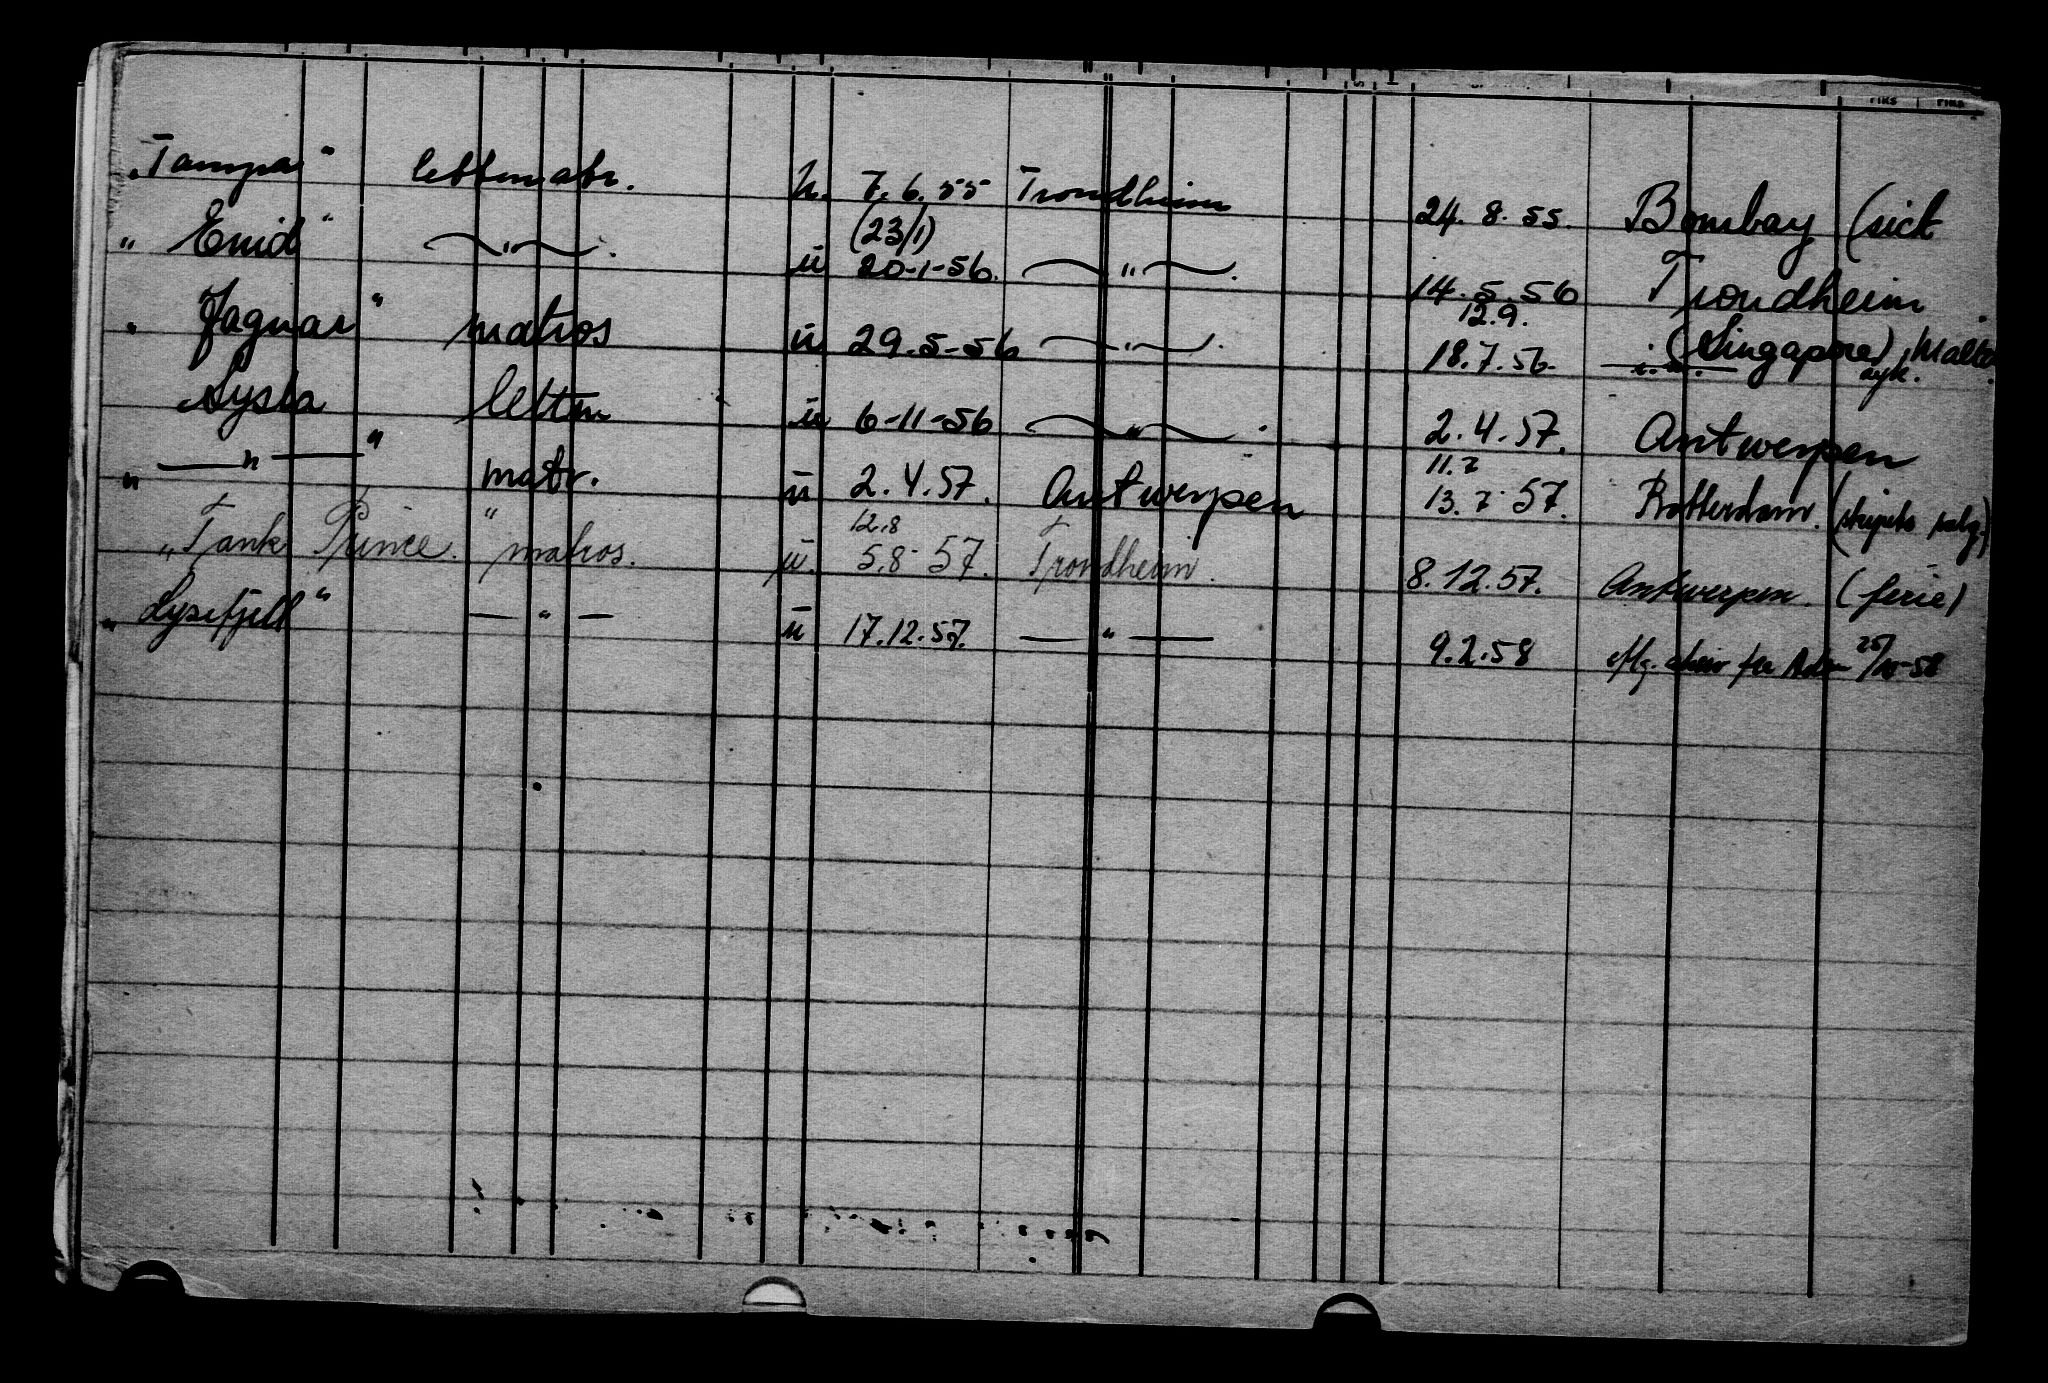 "Tampa" lettmatr. u. 7.6.55 Trondheim 24.8.55. Bombay (sick
(23/1)
"Enid" —"—. ü 20-1-56. —"—. 14.5.56 Trondheim.
12.9.
"Jaguar" matros ü 29.5-56 —"—. 18.7.56. (Singapore) Malta syk.
Sysla lettm ü 6-11-56 —"—. 2.4.57. Antwerpen
11.7
" —"— " matr. ü 2.4.57. Antwerpen 13.7 57. Rotterdam. (skipets salg.)
12.8
"Tank Prince." matros. ü. 5.8-57. Trondheim. 8.12.57. Antwerpen. (ferie)
"Lysefjell" —"— ü 17.12.57. —"— 9.2.58 fra Aden 58